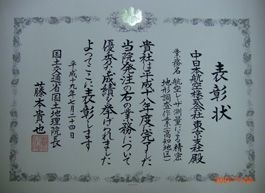 表彰状
中日本航空株式会社東京支社殿
業務名 航空レーザ測量による精密
地形調査作業(高知地区)
貴社は平成十八年度に完了した
当院発注の右の業務について
優秀な成績を挙げられました
よってここに表彰します
平成十九年七月二十四日
国土交通省国土地理院長
藤本貴也